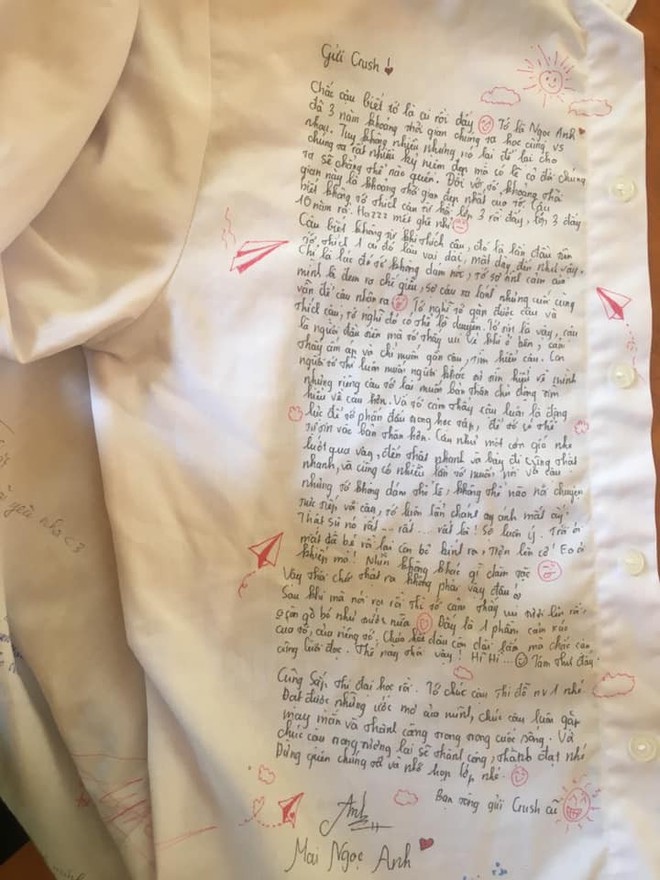 Gửi Crush !
Chắc cậu biết tớ là ai rồi đấy Tớ là Ngọc Anh
đã 3 năm khoảng thời gian chúng ta học cùng vs
nhau. Tuy không nhiều nhưng nó lại để lại cho
chúng ta rất nhiều kỷ niệm đẹp mà có lẽ cả đời chúng
ta sẽ chẳng thể nào quên. Đối với tớ khoảng thời
gian này là khoảng thời gian đẹp nhất của tớ. Cậu
biết không tớ thích cậu từ hồi lớp 3 rồi đấy, lớp 3 đấy
10 năm rồi. Hazzz mới ghê nhỉ
Cậu biết không từ khi thích cậu, đó là lần đầu tiên
tớ thích 1 ai đó lâu dài,
Chỉ là lúc đó tớ không dám nói, tớ sợ tình cảm của
mình là đem ra chỉ giễu, sợ cậu ra
vẫn để cậu nhận ra Tớ nghĩ tớ gặp được cậu và
thích cậu, tớ nghĩ đó có thể là duyên. Tớ là vậy, cậu
là người đầu tiên mà tớ thấy vui vẻ khi ở bên, cảm
thấy ấm áp và chỉ muốn gần cậu, tìm hiểu cậu. Con
người tớ thì luôn muốn người khác tìm hiểu về mình
nhưng riêng cậu tớ lại muốn bản thân chủ động tìm
hiểu về cậu hơn. Và tớ cảm thấy cậu luôn là động
lực để tớ phấn đấu trong học tập, để tớ có thể
tự tin vào bản thân hơn. Cậu như một cơn gió nhẹ
lướt qua vậy, đến thật nhanh và bay đi cũng thật
nhanh, và cũng có nhiều lần tớ muốn nói với cậu
nhưng tớ không dám thể là, không thể nào nói chuyện
trực tiếp với cậu, tớ luôn lẩn tránh ánh mắt cậu.
Thật sự nó rất ... rất ... rất là !
mắt đã bé rồi lại còn bị
mà ! Nhìn không khác gì
Vậy thôi chứ thật ra không phải vậy đâu
Sau khi mà nói ra rồi thì tớ cảm thấy
gò bó như trước nữa Đây là 1 phần cảm xúc
của tớ, của riêng tớ. Chưa hết đâu còn dài lắm mà chắc cậu
cũng lười đọc. Thế này thôi vậy ! Hì Hì ... Tâm thư đấy
Cũng Sắp thi đại học rồi. Tớ chúc cậu thi đỗ nv1 nhé.
Đạt được những ước mơ của mình, chúc cậu luôn gặp
may mắn và thành công trong cuộc sống. Và
chúc cậu trong tương lai sẽ thành công, thành đạt nhé
Đừng quên chúng tớ và nhớ họp lớp nhé.
Bạn gửi Crush cũ
Anh
Mai Ngọc Anh
yêu nhá <3